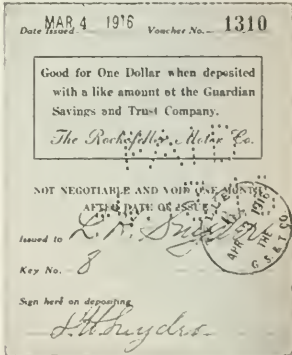 Date Issued MAR 4 1916 Voucher No. 1310
Good for One Dollar when deposited
with a like amount at the Guardian
Savings and Trust Company.
The Rockefeller Motor Co.
NOT NEGOTIABLE AND VOID ONE MONTH
AFTER DATE OF ISSUE
Issued to L. H. Snyder
APR 3 1916
THE
G. S. & T. CO.
Key No. 8
Sign here on depositing
L H Snyder